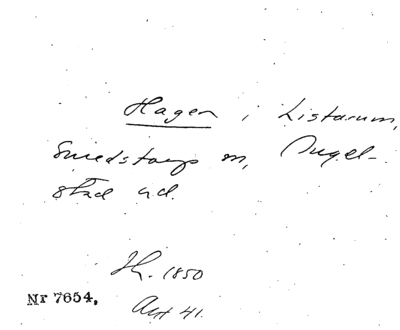 Hagen i Listarum,
Smedstorps sn, Ingel-
stad hd.
Lh. 1850
Nr 7654.
Art 41.